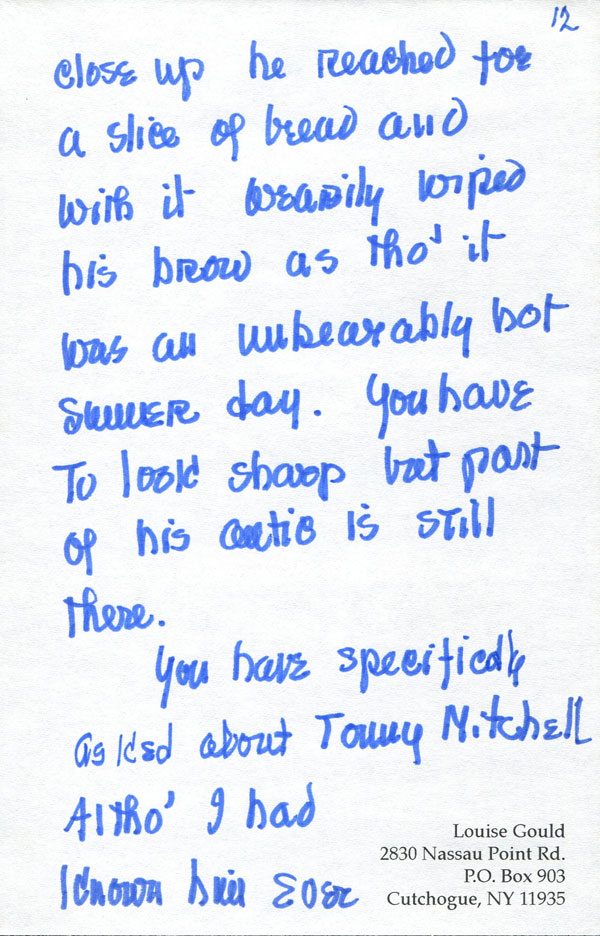 12
close up he reached for
a slice of bread and
with it wearily wiped
his brow as tho' it
was an unbearably hot
summer day. You have
To look sharp but part
of his antic is still
there.
You have specifically
asked about Tommy Mitchell
Altho' I had
known him ever
Louise Gould
2830 Nassau Point Rd.
P.O. Box 903
Cutchogue, NY 11935